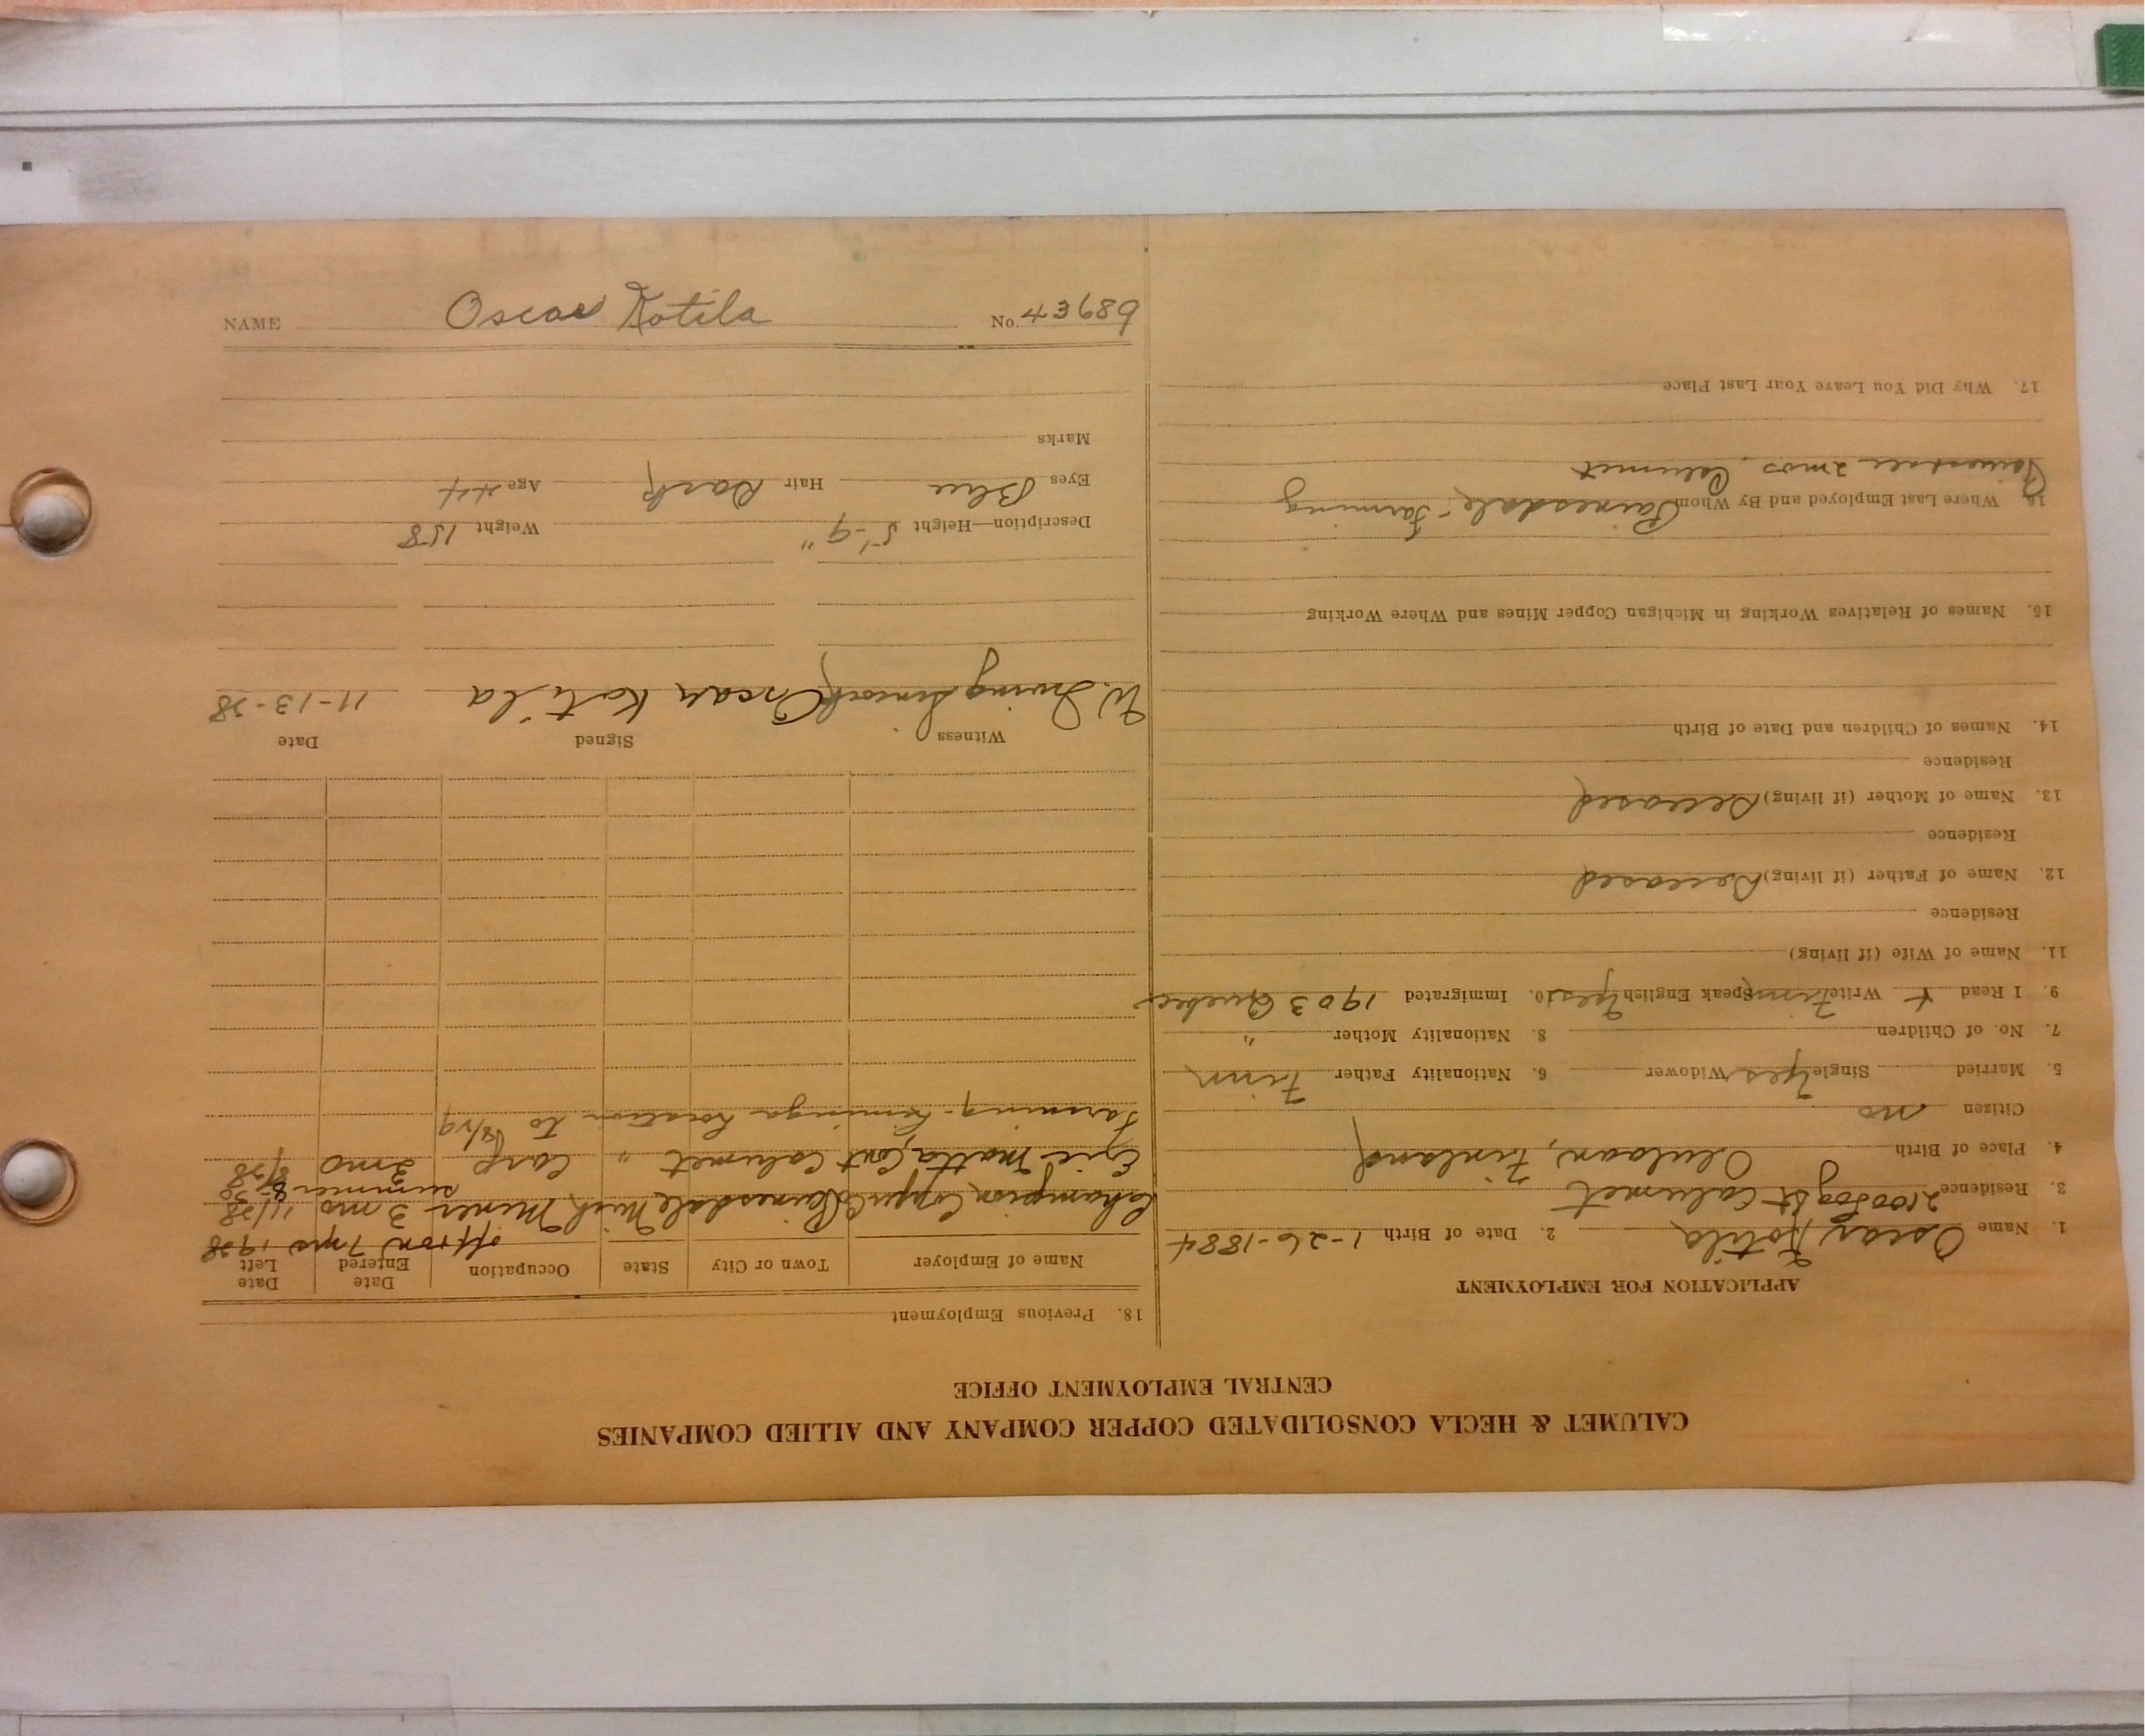 CALUMET & HECLA CONSOLIDATED COPPER COMPANY AND ALLIED COMPANIES
CENTRAL EMPLOYMENT OFFICE
APPLICATION FOR EMPLOYMENT
1. Name Oscar Kotila 2. Date of Birth 1-26-1884
3. Residence 2100 St Calumet
4. Place of Birth Oulaan, Finland
Citizen no
5. Married Single Yes Widower 6. Nationality Father Finn
7. No. of Children 8. Nationality Mother "
9. I Read + Write Finn Speak English Yes 10. Immigrated 1903 Quebec
11. Name of Wife (if living)
Residence
12. Name of Father (if living) Deceased
Residence
13. Name of Mother (if living) Deceased
Residence
14. Names of Children and Date of Birth
15. Names of Relatives Working in Michigan Copper Mines and Where Working
16. Where Last Employed and By Whom Painesdale, Farming
2 mos, Calumet
17. Why Did You Leave Your Last Place
18. Previous Employment
Name of Employer Town or City State Occupation Date Entered Date Left
off + on 7 yrs 1928
Champion Copper Co Painesdale Mich Miner 3 mo 11/28
summer 8-30
Eric Matta, Cont Calumet " Carp 2 mo 8/38
Farming - location to
Witness Signed Date
W. Irving Oscar Kotila 11-13-38
Description—Height 5'-9" Weight 158
Eyes Blue Hair Dark Age 44
Marks
NAME Oscar Kotila No. 43689